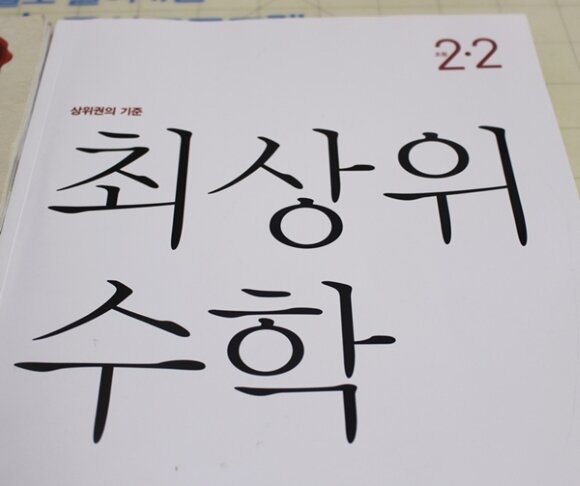 초등 2·2
상위권의 기준
최상위
수학